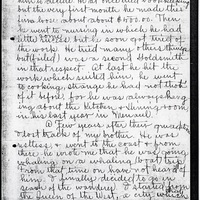 the very first month he made this
firm lose about about $4000.00. Then
he went to nursing in which he had
little success but he soon got tired of
the work. He tried many others things
but failed; was a second Stedman
in that respect. At last he hit the
work which suited him, he went
to cooking; strange he had not thought
of it before, for he was always hang-
ing about the kitchen & dining room
in his last year in Harvard.
A few years after this quarter
I lost track of my brother. He was
restless & went to the coast & from
there he wrote me that he was going
whaling on a whaling boat trip
From that time on have not heard of
So I finally decided to go in
search of the wanderer. I started from
the Queen of the West, a city which